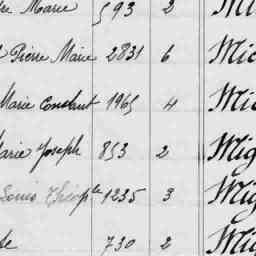 Marie 593 2 Mi
Pierre Marie 2831 6 Mic
Marie Constant 1965 4 Mi
Marie Joseph 853 2 Mig
Louis Théople 1235 3 Mig
730 2 Mig